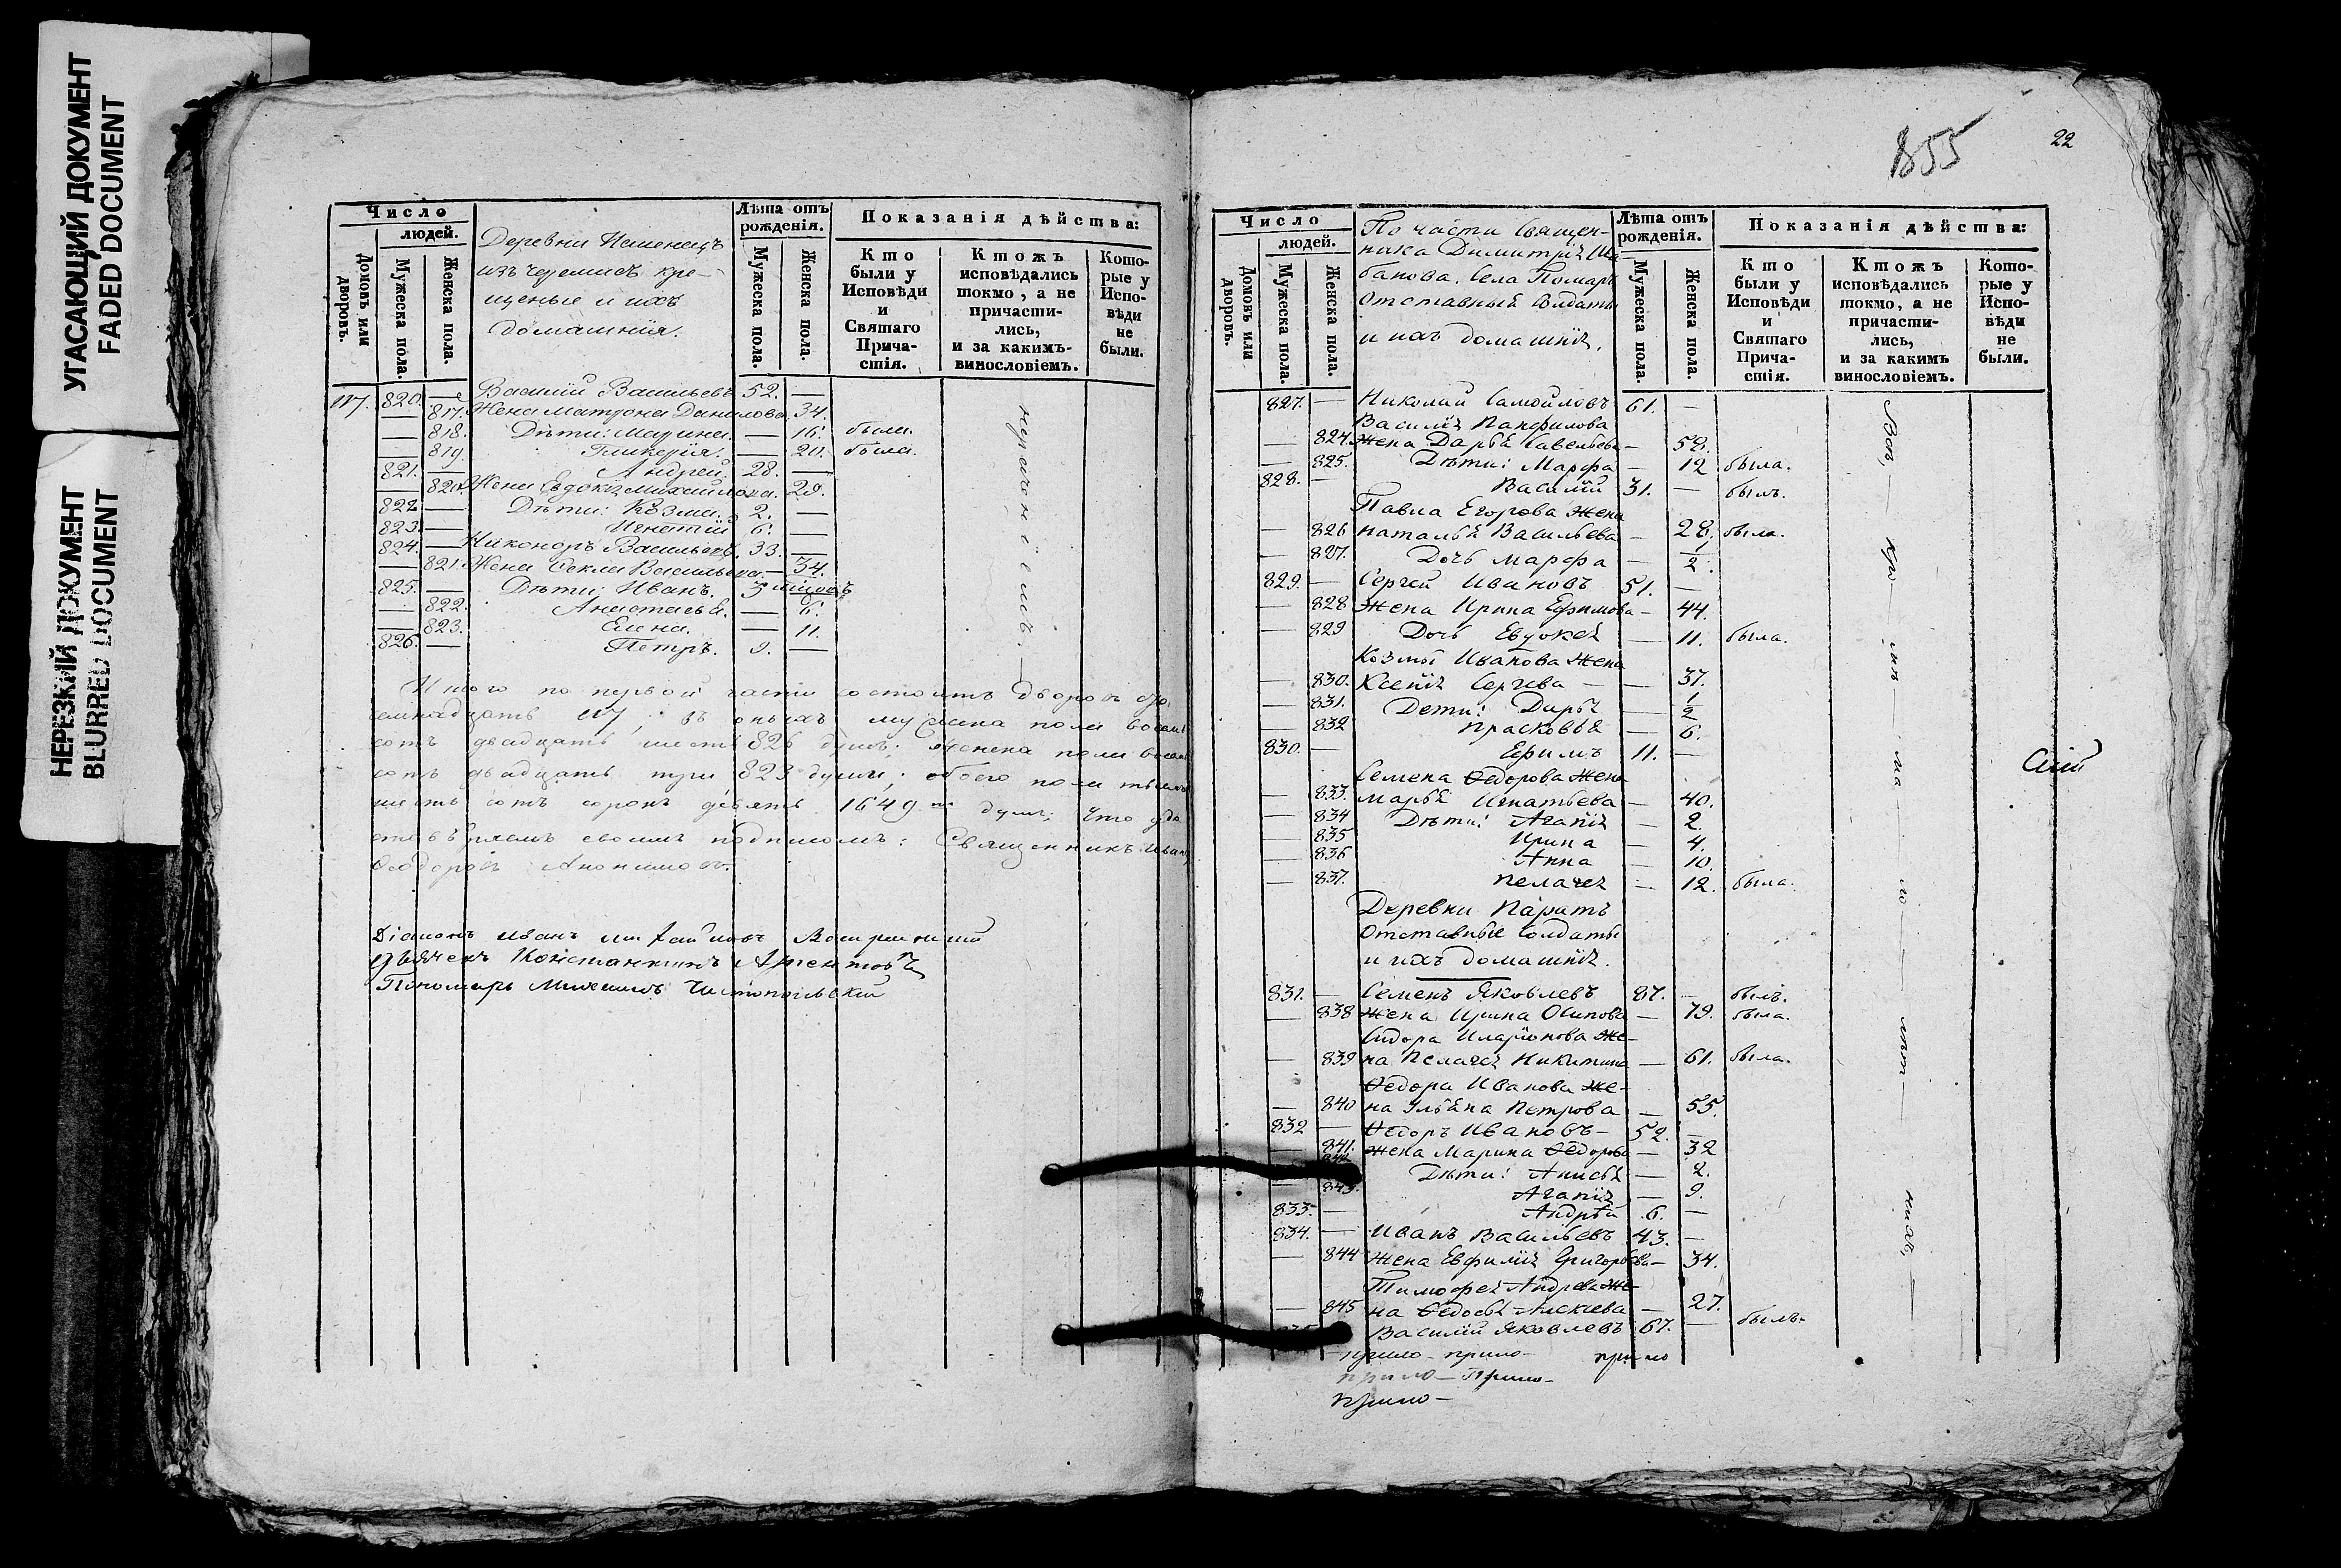 УГАСАЮЩИЙ ДОКУМЕНТ
FADED DOCUMENT
НЕРЕЗКИЙ ДОКУМЕНТ
BLURRED DOCUMENT
Число
людей.
Домовъ или дворовъ.
Мужеска пола.
Женска пола.
Деревни
изъ черемисъ кре-
щеные и ихъ
домашнія.
Лѣта отъ
рожденія.
Мужеска пола.
Женска пола.
Показанія дѣйства:
Кто
были у
Исповѣди
и
Святаго
Прича-
стія.
Ктожъ
исповѣдались
токмо, а не
причасти-
лись,
и за какимъ-
винословіемъ.
Кото-
рые у
Испо-
вѣди
не
были.
117. 820. — Василій Васильевъ 52. —
— 817. Жена Матрона Данилова 34.
— 818. Дѣти: Марина. — 16. была.
— 819. Гликерія. — 20. была.
821. — Андрей. 28. —
— 820. Жена Евдокія Михайлова. 29.
822 — Дѣти: Козма. 2. —
823. — Игнатій 6. —
824. — Никоноръ Васильевъ. 33. —
— 821. Жена Ѳекла Васильева — 34.
825. — Дѣти: Иванъ. 3
— 822. Анастасья. — 6.
— 823. Елена. — 11.
826. — Петръ. 9. —
нераченіемъ. —
Итого по первой части состоитъ дворовъ сто
семнадцать 117, въ оныхъ мужеска пола восемь
сотъ двадцать шесть 826 душъ; женска пола восемь
сотъ двадцать три 823 души; обоего пола тысяча
шесть сотъ сорокъ девять 1649 душъ; что удо
стовѣряемъ своимъ подписомъ: Священникъ Иванъ
Ѳеодоровъ
Діаконъ Иванъ Михайловъ
Дьячекъ Константинъ
Пономарь Михаилъ Чистопольскій
855
22
Число
людей.
Домовъ или дворовъ.
Мужеска пола.
Женска пола.
По части Священ-
ника Димитрія Ша-
банова. Села Помаръ
Отставные Солдаты
и ихъ домашнія.
Лѣта отъ
рожденія.
Мужеска пола.
Женска пола.
Показанія дѣйства:
Кто
были у
Исповѣди
и
Святаго
Прича-
стія.
Ктожъ
исповѣдались
токмо, а не
причасти-
лись,
и за какимъ
винословіемъ.
Кото-
рые у
Испо-
вѣди
не
были.
827. — Николай Самойловъ 61. —
Василія Панфилова
— 824. Жена Дарья Савельева — 58.
— 825. Дѣти: Марфа — 12 была.
828. — Василій 31. — былъ.
Павла Егорова Жена
— 826 Наталья Васильева — 28. была.
— 827. Дочь Марфа — 1/2.
829. — Сергей Ивановъ 51. —
— 828 Жена Ирина Ефимова — 44.
— 829 Дочь Евдокея — 11. была.
Козмы Иванова Жена
— 830. Ксенія Сергева — — 37.
— 831. Дети: Дарья — 1/2
— 832 Прасковья — 6.
830. — Ефимъ 11. —
Семена Ѳедорова Жена
— 833. Марья Игнатьева — 40.
— 834 Дѣти: Агапія — 2.
— 835 Ирина — 4.
— 836 Анна — 10.
— 837. Пелагея — 12. была.
Деревни Паратъ
Отставные Солдаты
и ихъ домашнія.
831. — Семенъ Яковлевъ 87. — былъ.
— 838 Жена Ирина Осипова — 79. была.
Сидора Иларіонова Же-
— 839 на Пелагея Никитина — 61. была.
Ѳедора Иванова Же-
— 840 на Ульяна Петрова — 55.
832 — Ѳедоръ Ивановъ — 52. —
— 841. Жена Марина Ѳедорова — 32
Дѣти: Анисья — 2.
843. Агапія — 9.
833. — Андрѣй 6. —
834. — Иванъ Васильевъ 43. —
— 844 Жена Евфимія Григорьева — 34.
Тимофея Андрева Же-
— 845 на Ѳедосья Алексіева — 27.
Василій Яковлевъ 67. — былъ.
Сіи